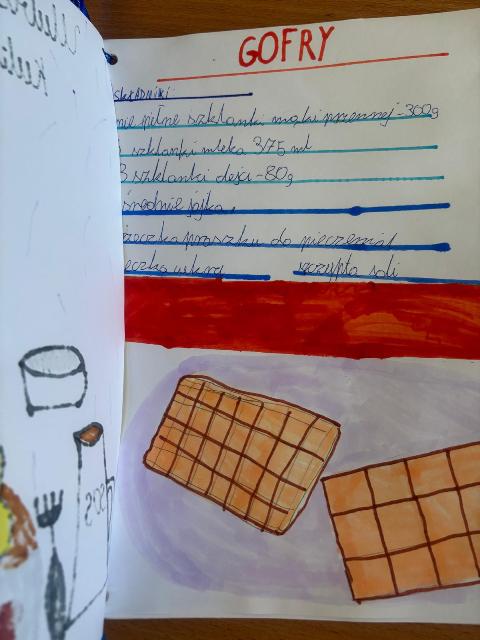 GOFRY
SKŁADNIKI:
pełne szklanki mąki pszennej - 300g
szklanki mleka 375 ml
3 szklanki oleju - 80g
średnie jajka,
proszku do pieczenia
szczypta soli